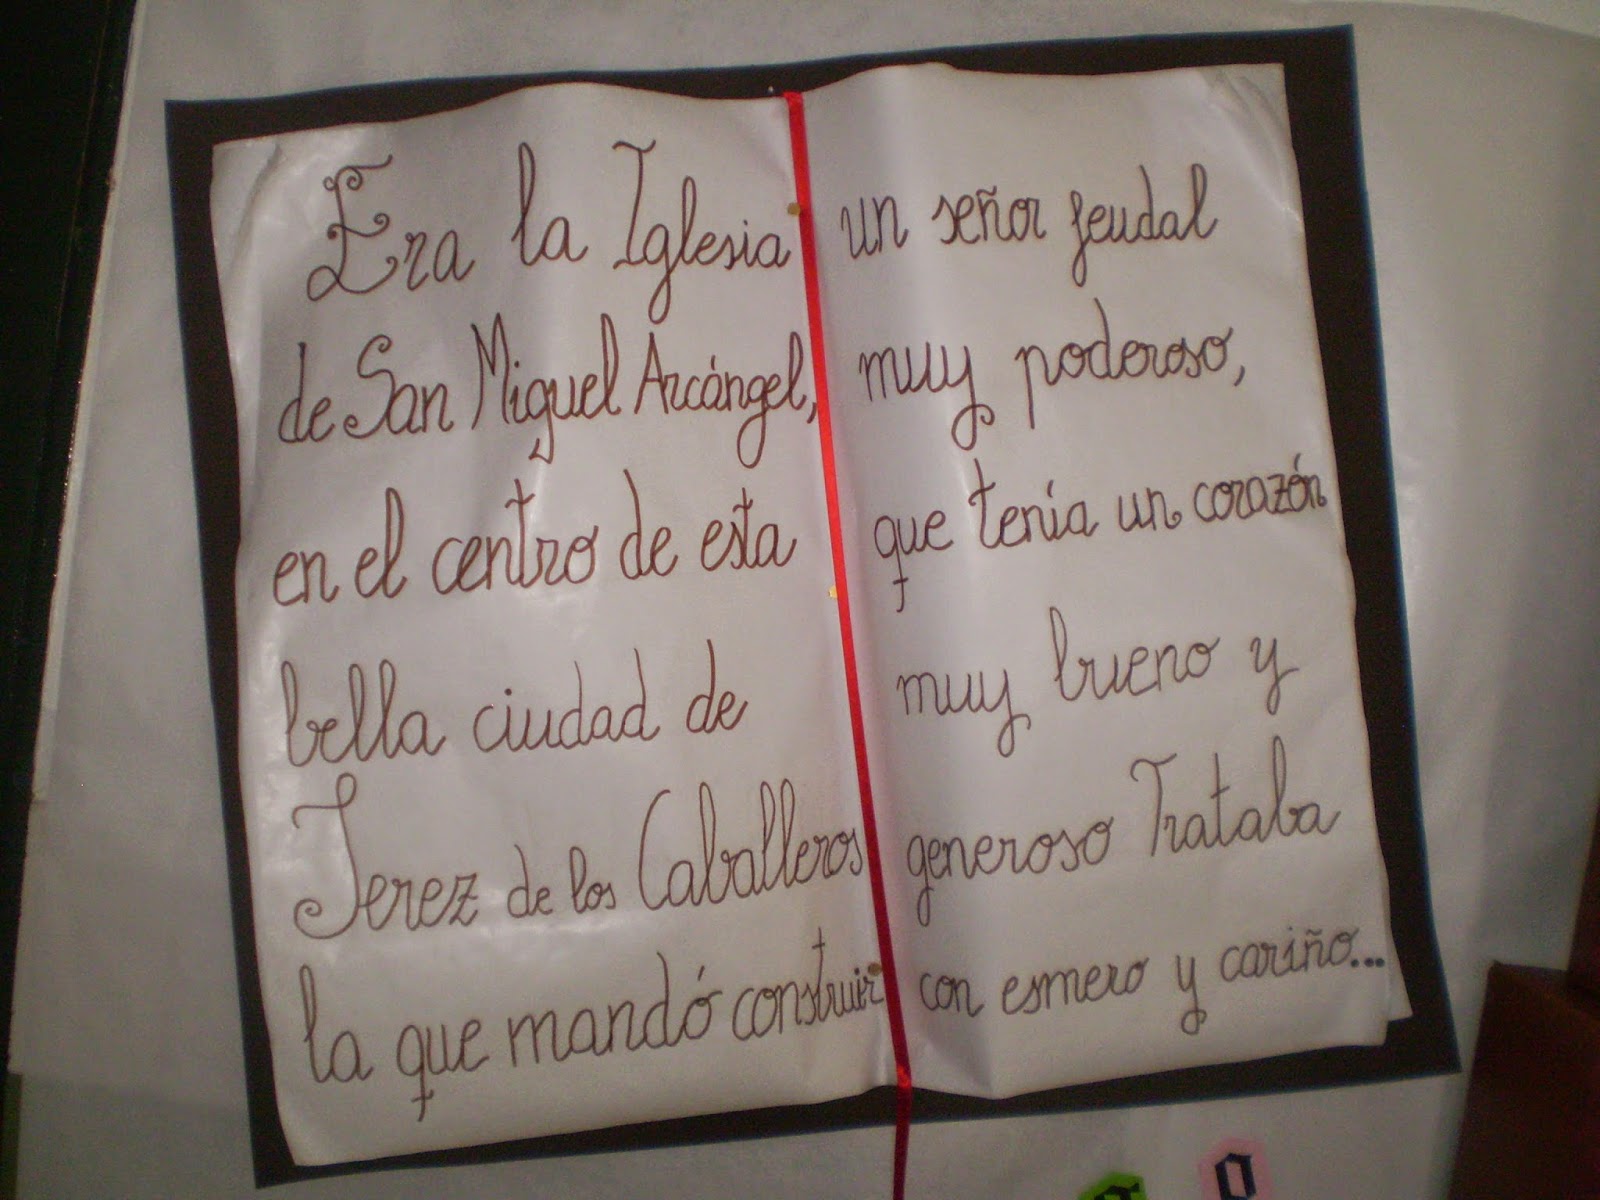 Era la Iglesia
de San Miguel Arcángel,
en el centro de esta
bella ciudad de
Jerez de los Caballeros
la que mandó construir
un señor feudal
muy poderoso,
que tenía un corazón
muy bueno y
generoso Trataba
con esmero y cariño...
O